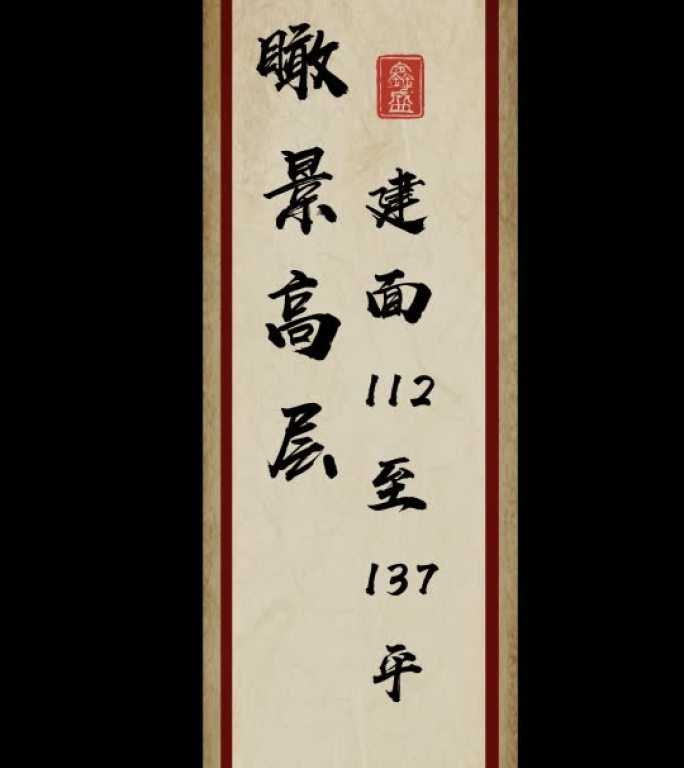 瞰景高层
鑫盛
建面112至137平